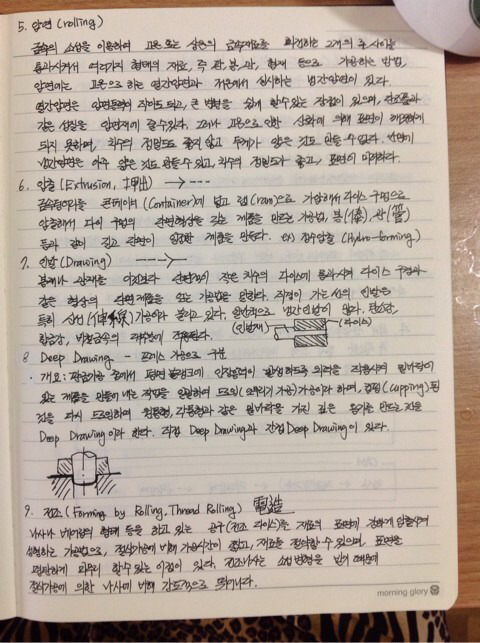 5. 압연 (rolling)
금속의 소성을 이용하여 고온 또는 상온의 금속재료를 회전하는 2개의 롤 사이로
통과시켜서 여러가지 형태의 재료, 즉 판, 봉, 관, 형재 등으로 가공하는 방법,
압연에는 고온으로 하는 열간압연과 저온에서 실시하는 냉간압연이 있다.
열간압연은 압연동력이 적어도 되고, 큰 변형을 쉽게 할 수 있는 장점이 있으며, 단조품과
같은 성질을 압연재에 줄 수 있다. 그러나 고온으로 인한 산화에 의해 표면이 깨끗하게
되지 못하며, 치수의 정밀도도 좋지 않고 두께가 얇은 것도 만들 수 없다. 반면에
냉간압연은 아주 얇은 것도 만들 수 있고, 치수의 정밀도가 좋고, 표면이 미려하다.
6. 압출 (Extrusion, 押出)
금속덩어리를 콘테이너 (Container)에 넣고 램(ram)으로 가압해서 다이스 구멍으로
압출해서 다이 구멍의 단면형상을 갖는 제품을 만드는 가공법, 봉(棒), 관(管)
등과 같이 길고 단면이 일정한 제품을 만든다. ex) 정수압출 (Hydro-forming)
7. 인발 (Drawing)
봉재나 관재를 이것보다 단면적이 작은 치수의 다이스에 통과시켜 다이스 구멍과
같은 형상의 단면 제품을 얻는 가공법을 말한다. 직경이 가는 선의 인발은
특히 신선(伸線)가공이라 불리고 있다. 일반적으로 냉간인발이 많다. 탄소강,
합금강, 비철금속의 대부분에 적용된다.
(인발재)
(다이스)
8. Deep Drawing - 프레스 가공으로 구분
· 개요 : 판금가공 중에서 평면 블랭크에 인장응력이 발생하도록 외력을 작용시켜 밑바닥이
있는 제품을 만들어 내는 작업을 일괄하여 드로잉(오무리기 가공)가공이라 하며, 컵핑(cupping)된
것을 다시 드로잉하여 원통형, 각통형과 같은 밑바닥을 가진 깊은 용기를 만드는 것을
Deep Drawing이라 한다. 직접 Deep Drawing과 간접 Deep Drawing이 있다.
9. 전조 (Forming by Rolling, Thread Rolling) 電造
나사나 베어링의 형태 등을 하고 있는 공구(전조 다이스)를 재료의 표면에 강하게 압출시켜
성형하는 가공법으로, 절삭가공에 비해 가공시간이 짧고, 재료를 절약할 수 있으며, 표면을
평탄하게 마무리 할 수 있는 이점이 있다. 전조나사는 소성변형을 받기 때문에
절삭가공에 의한 나사에 비해 강도적으로 뛰어나다.
morning glory